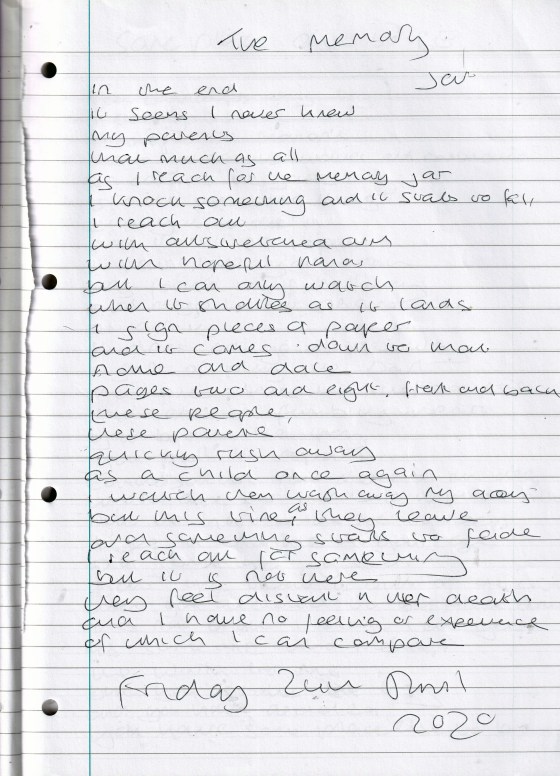 The memory
Jar
in the end
it seems I never knew
my parents
that much as all
as I reach for the memory jar
I knock something and it starts to fall,
I reach out
with outstretched arm
with hopeful hand
but I can only watch
when it shatters as it lands
I sign pieces of paper
and it comes down to that
name and date
pages two and eight, front and back
these people,
these parents
quickly rush away
as a child once again
I watch them walk away my
but this time, as they leave
and something starts to fade
I reach out for something
but it is not there
they feel distant in death
and I have no feeling or experience
of which I can compare
Friday 24th April
2020